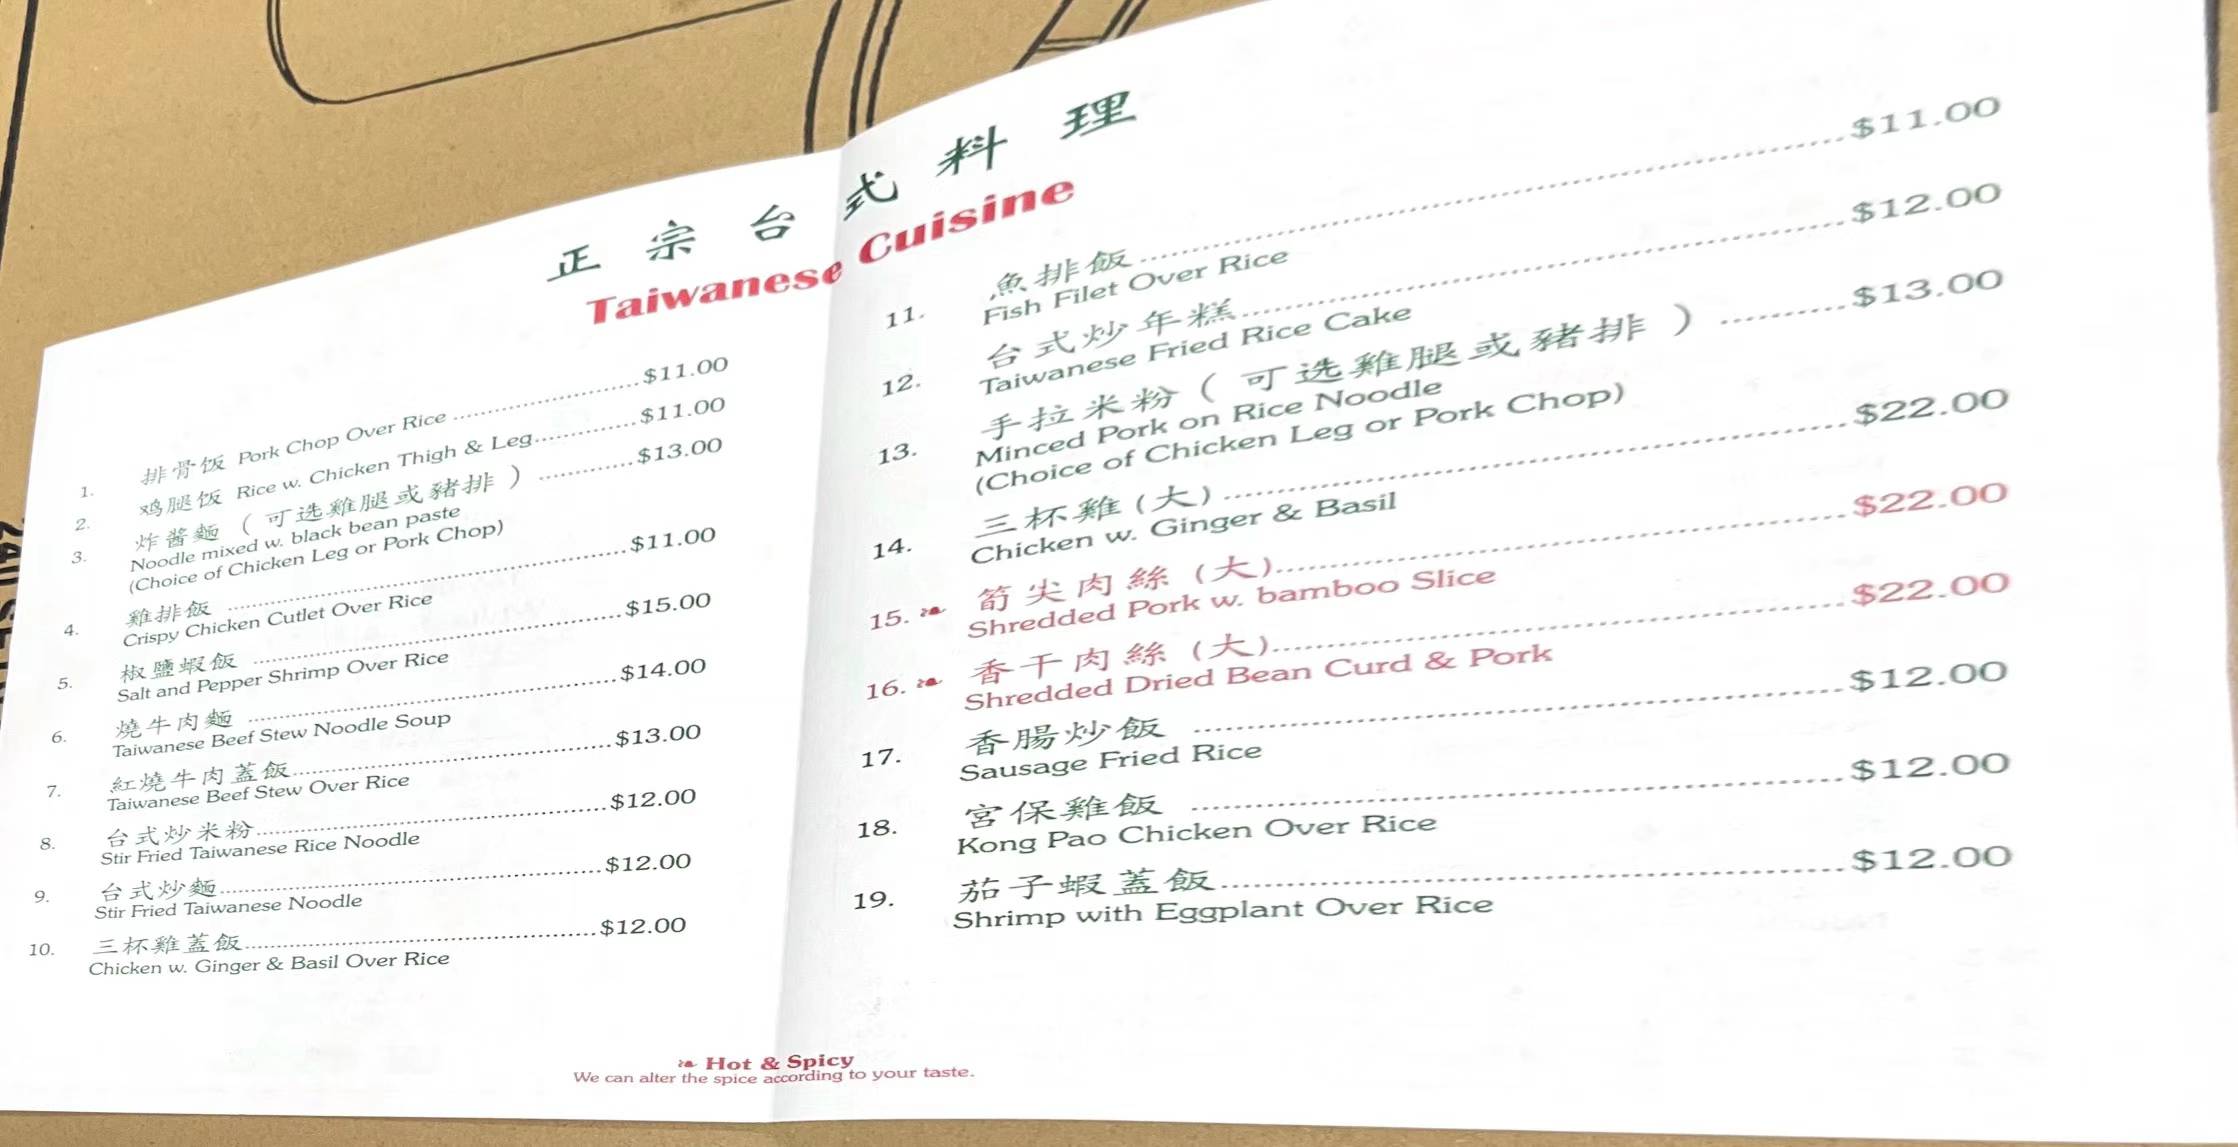 正宗台式料理
Taiwanese Cuisine
1. 排骨饭 Pork Chop Over Rice $11.00
2. 鸡腿饭 Rice w. Chicken Thigh & Leg $11.00
3. 炸醬麵（可选雞腿或豬排） $13.00
Noodle mixed w. black bean paste
(Choice of Chicken Leg or Pork Chop)
4. 雞排飯 $11.00
Crispy Chicken Cutlet Over Rice
5. 椒鹽蝦飯 $15.00
Salt and Pepper Shrimp Over Rice
6. 燒牛肉麵 $14.00
Taiwanese Beef Stew Noodle Soup
7. 紅燒牛肉蓋飯 $13.00
Taiwanese Beef Stew Over Rice
8. 台式炒米粉 $12.00
Stir Fried Taiwanese Rice Noodle
9. 台式炒麵 $12.00
Stir Fried Taiwanese Noodle
10. 三杯雞蓋飯 $12.00
Chicken w. Ginger & Basil Over Rice
11. 魚排飯 $11.00
Fish Filet Over Rice
12. 台式炒年糕 $12.00
Taiwanese Fried Rice Cake
13. 手拉米粉（可选雞腿或豬排） $13.00
Minced Pork on Rice Noodle
(Choice of Chicken Leg or Pork Chop)
14. 三杯雞(大) $22.00
Chicken w. Ginger & Basil
15. 筍尖肉絲(大) $22.00
Shredded Pork w. bamboo Slice
16. 香干肉絲(大) $22.00
Shredded Dried Bean Curd & Pork
17. 香腸炒飯 $12.00
Sausage Fried Rice
18. 宮保雞飯 $12.00
Kong Pao Chicken Over Rice
19. 茄子蝦蓋飯 $12.00
Shrimp with Eggplant Over Rice
Hot & Spicy
We can alter the spice according to your taste.